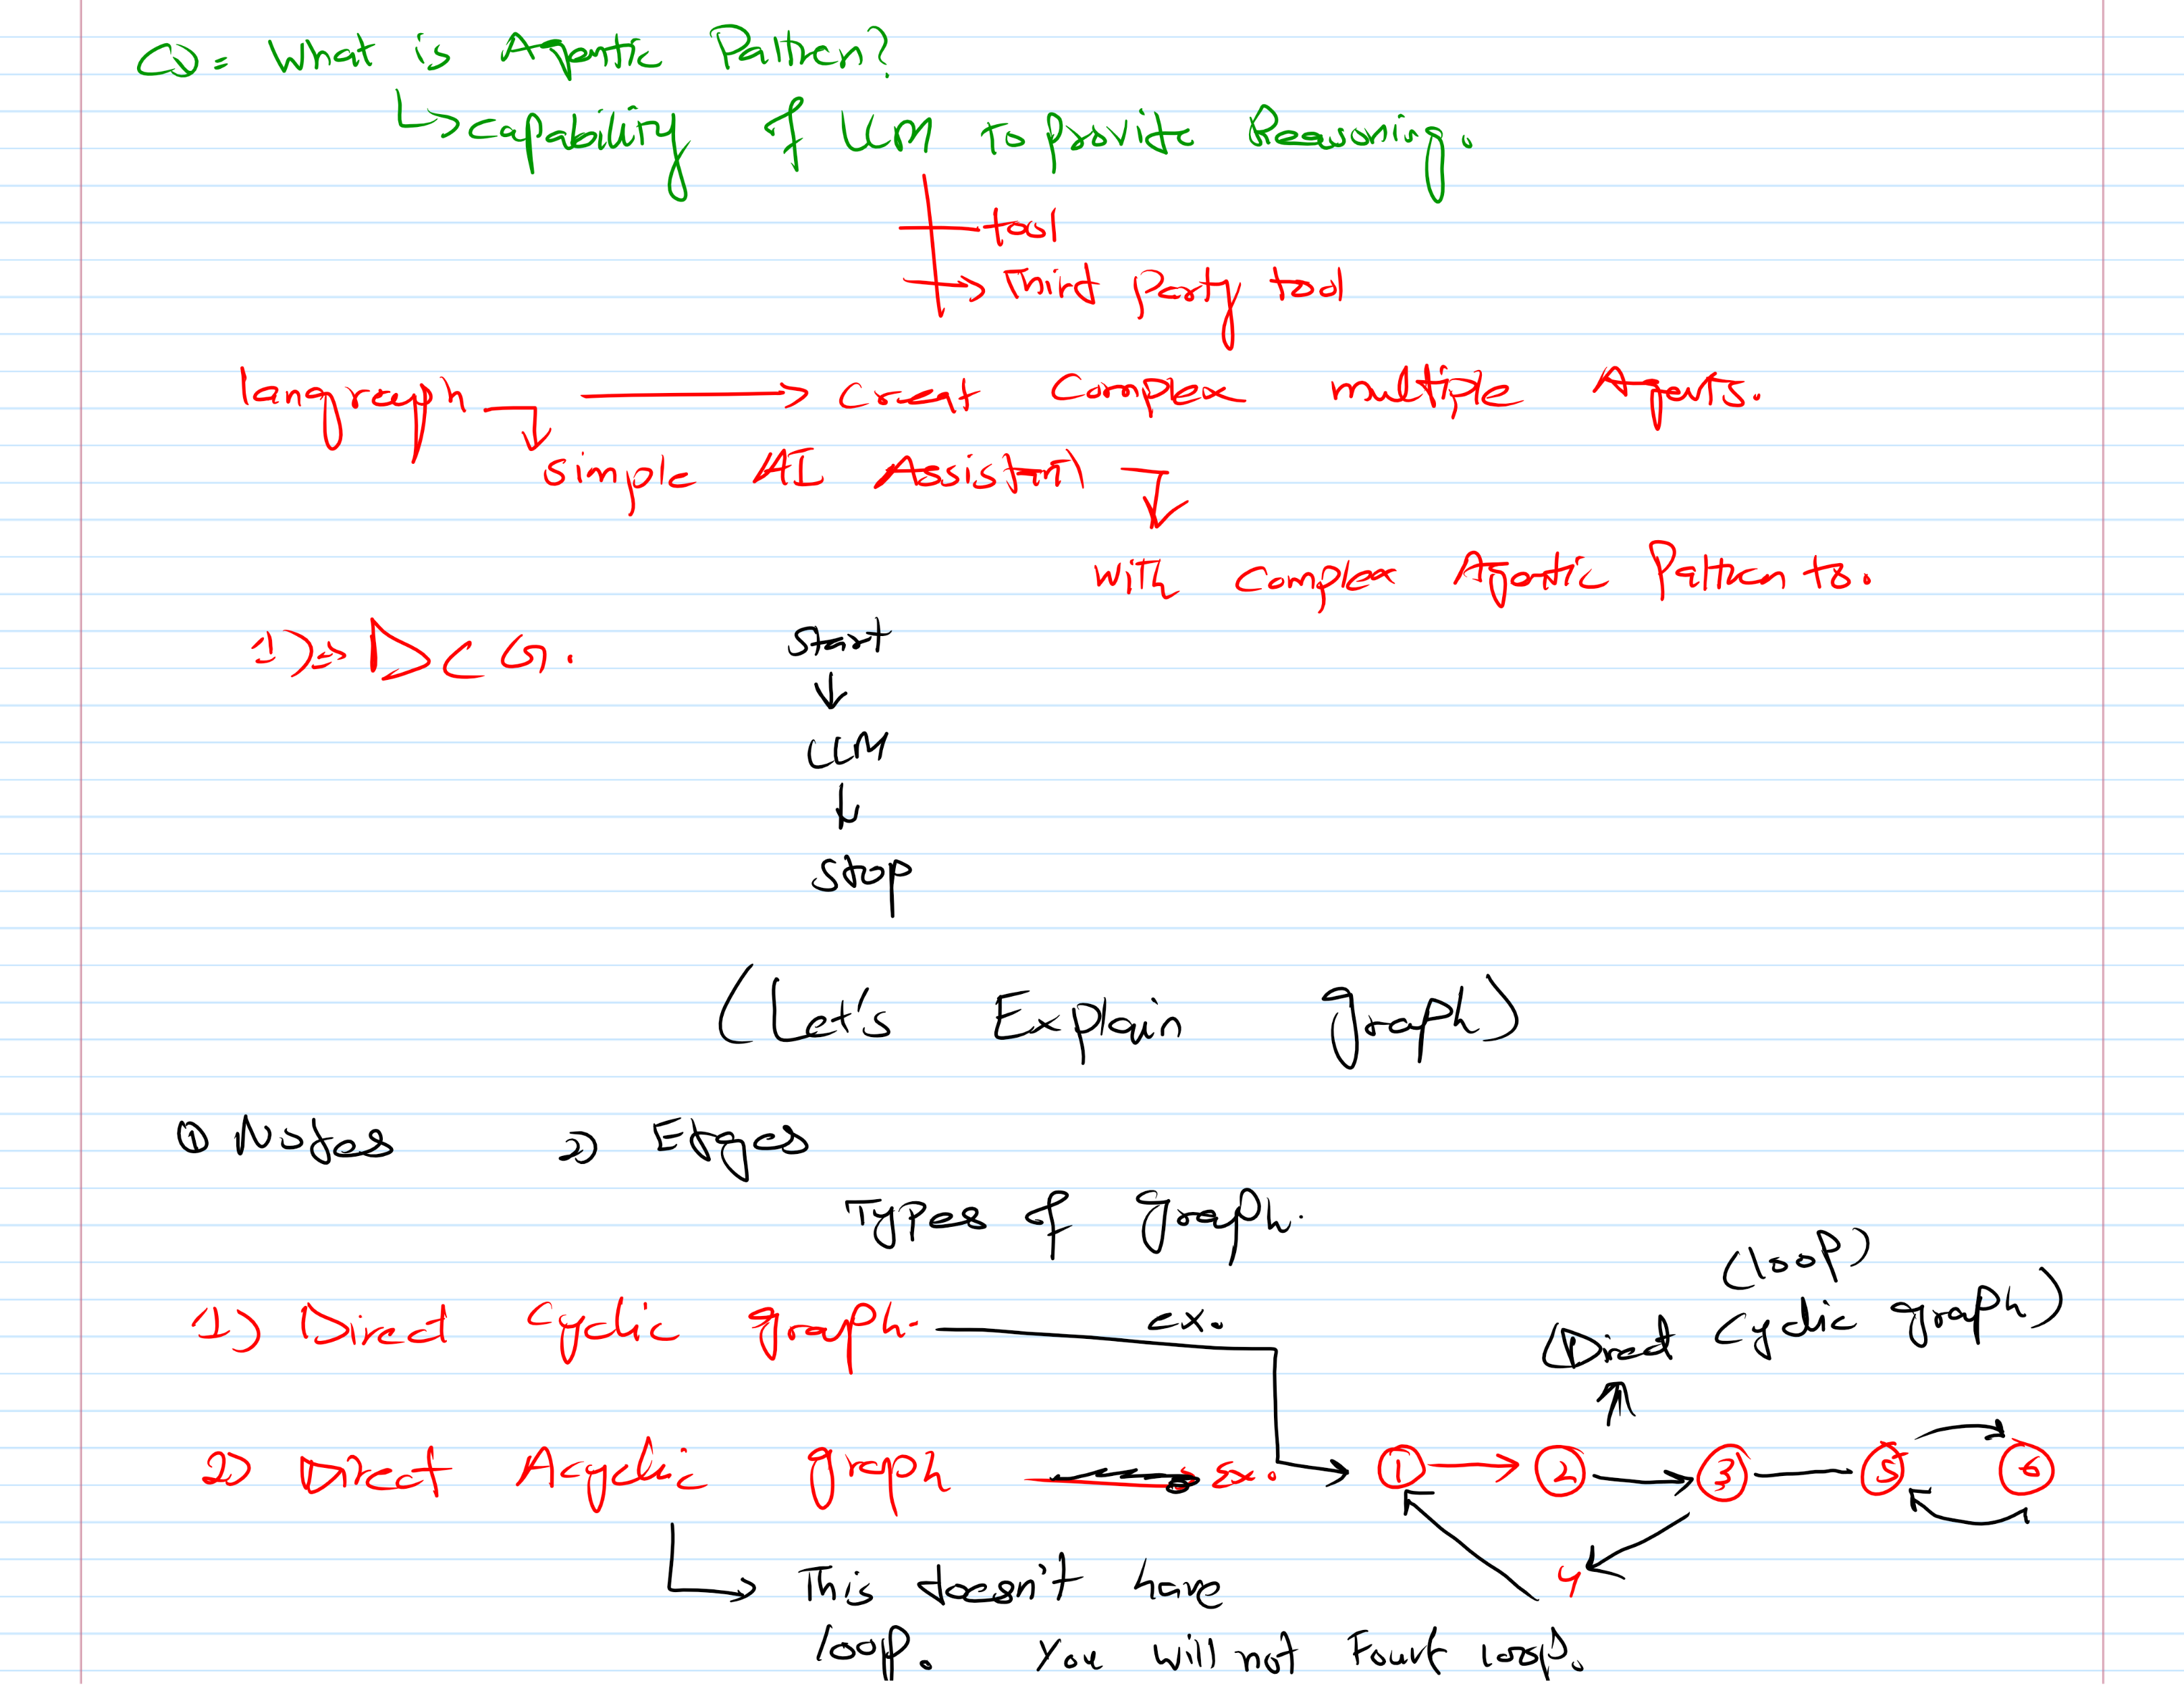 Q= What is Agentic Pattern?
capability of LLM to provide Reasoning.
tool
Third Party tool
langraph Creat Complex multiple Agents.
Simple AI Assistant
with Complex Agentic Pattern ts.
1)= DCG.
Start
LLM
Stop
(Let's Explain graph)
① Nodes 2) Edges
Types of graph.
(loop)
1) Direct Cyclic graph. ex. (Direct cyclic graph)
2) Direct Acyclic graph Ex. 1 2 3 5 6
4
This doesn't have
loop. You will not Found loop.